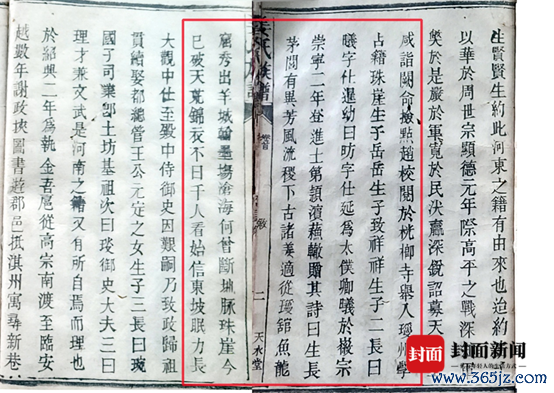 生賢賢生約此河東之籍有由來也迨約
以華於周世宗顯德元年際高平之戰深
奬於是嚴於軍寬於民決應深銳詔募天
咸詣闕命撿點趙校閱於枕柳寺舉入瓊州學
占籍珠崖生子岳岳生子致祥祥生子二長曰
曦字仕進幼曰昉字仕延為太僕卿曦於徽宗
崇寧二年登進士第頴濱蘇轍贈其詩曰生長
茅閒有異芳風流稷下古諸姜適從瓊舘魚龍
姜氏族譜 卷首 敘 二 天水堂
窟秀出羊城翰墨場滄海何曾斷地脉珠崖今
已破天荒錦衣不日千人看始信東坡眼力長
大觀中仕至殿中侍御史因艱嗣乃致政歸祖
貫續娶都總管王公元定之女生子三長曰琬
國子司業郎土坊基祖次曰琰御史大夫三曰
理才兼文武是河南之籍又有所自焉而理也
於紹興二年為執金吾扈從高宗南渡至臨安
越數年謝政挾圖書遊郡邑抵淇州寓尋新巷
封面
封面新闻
www.365jz.com